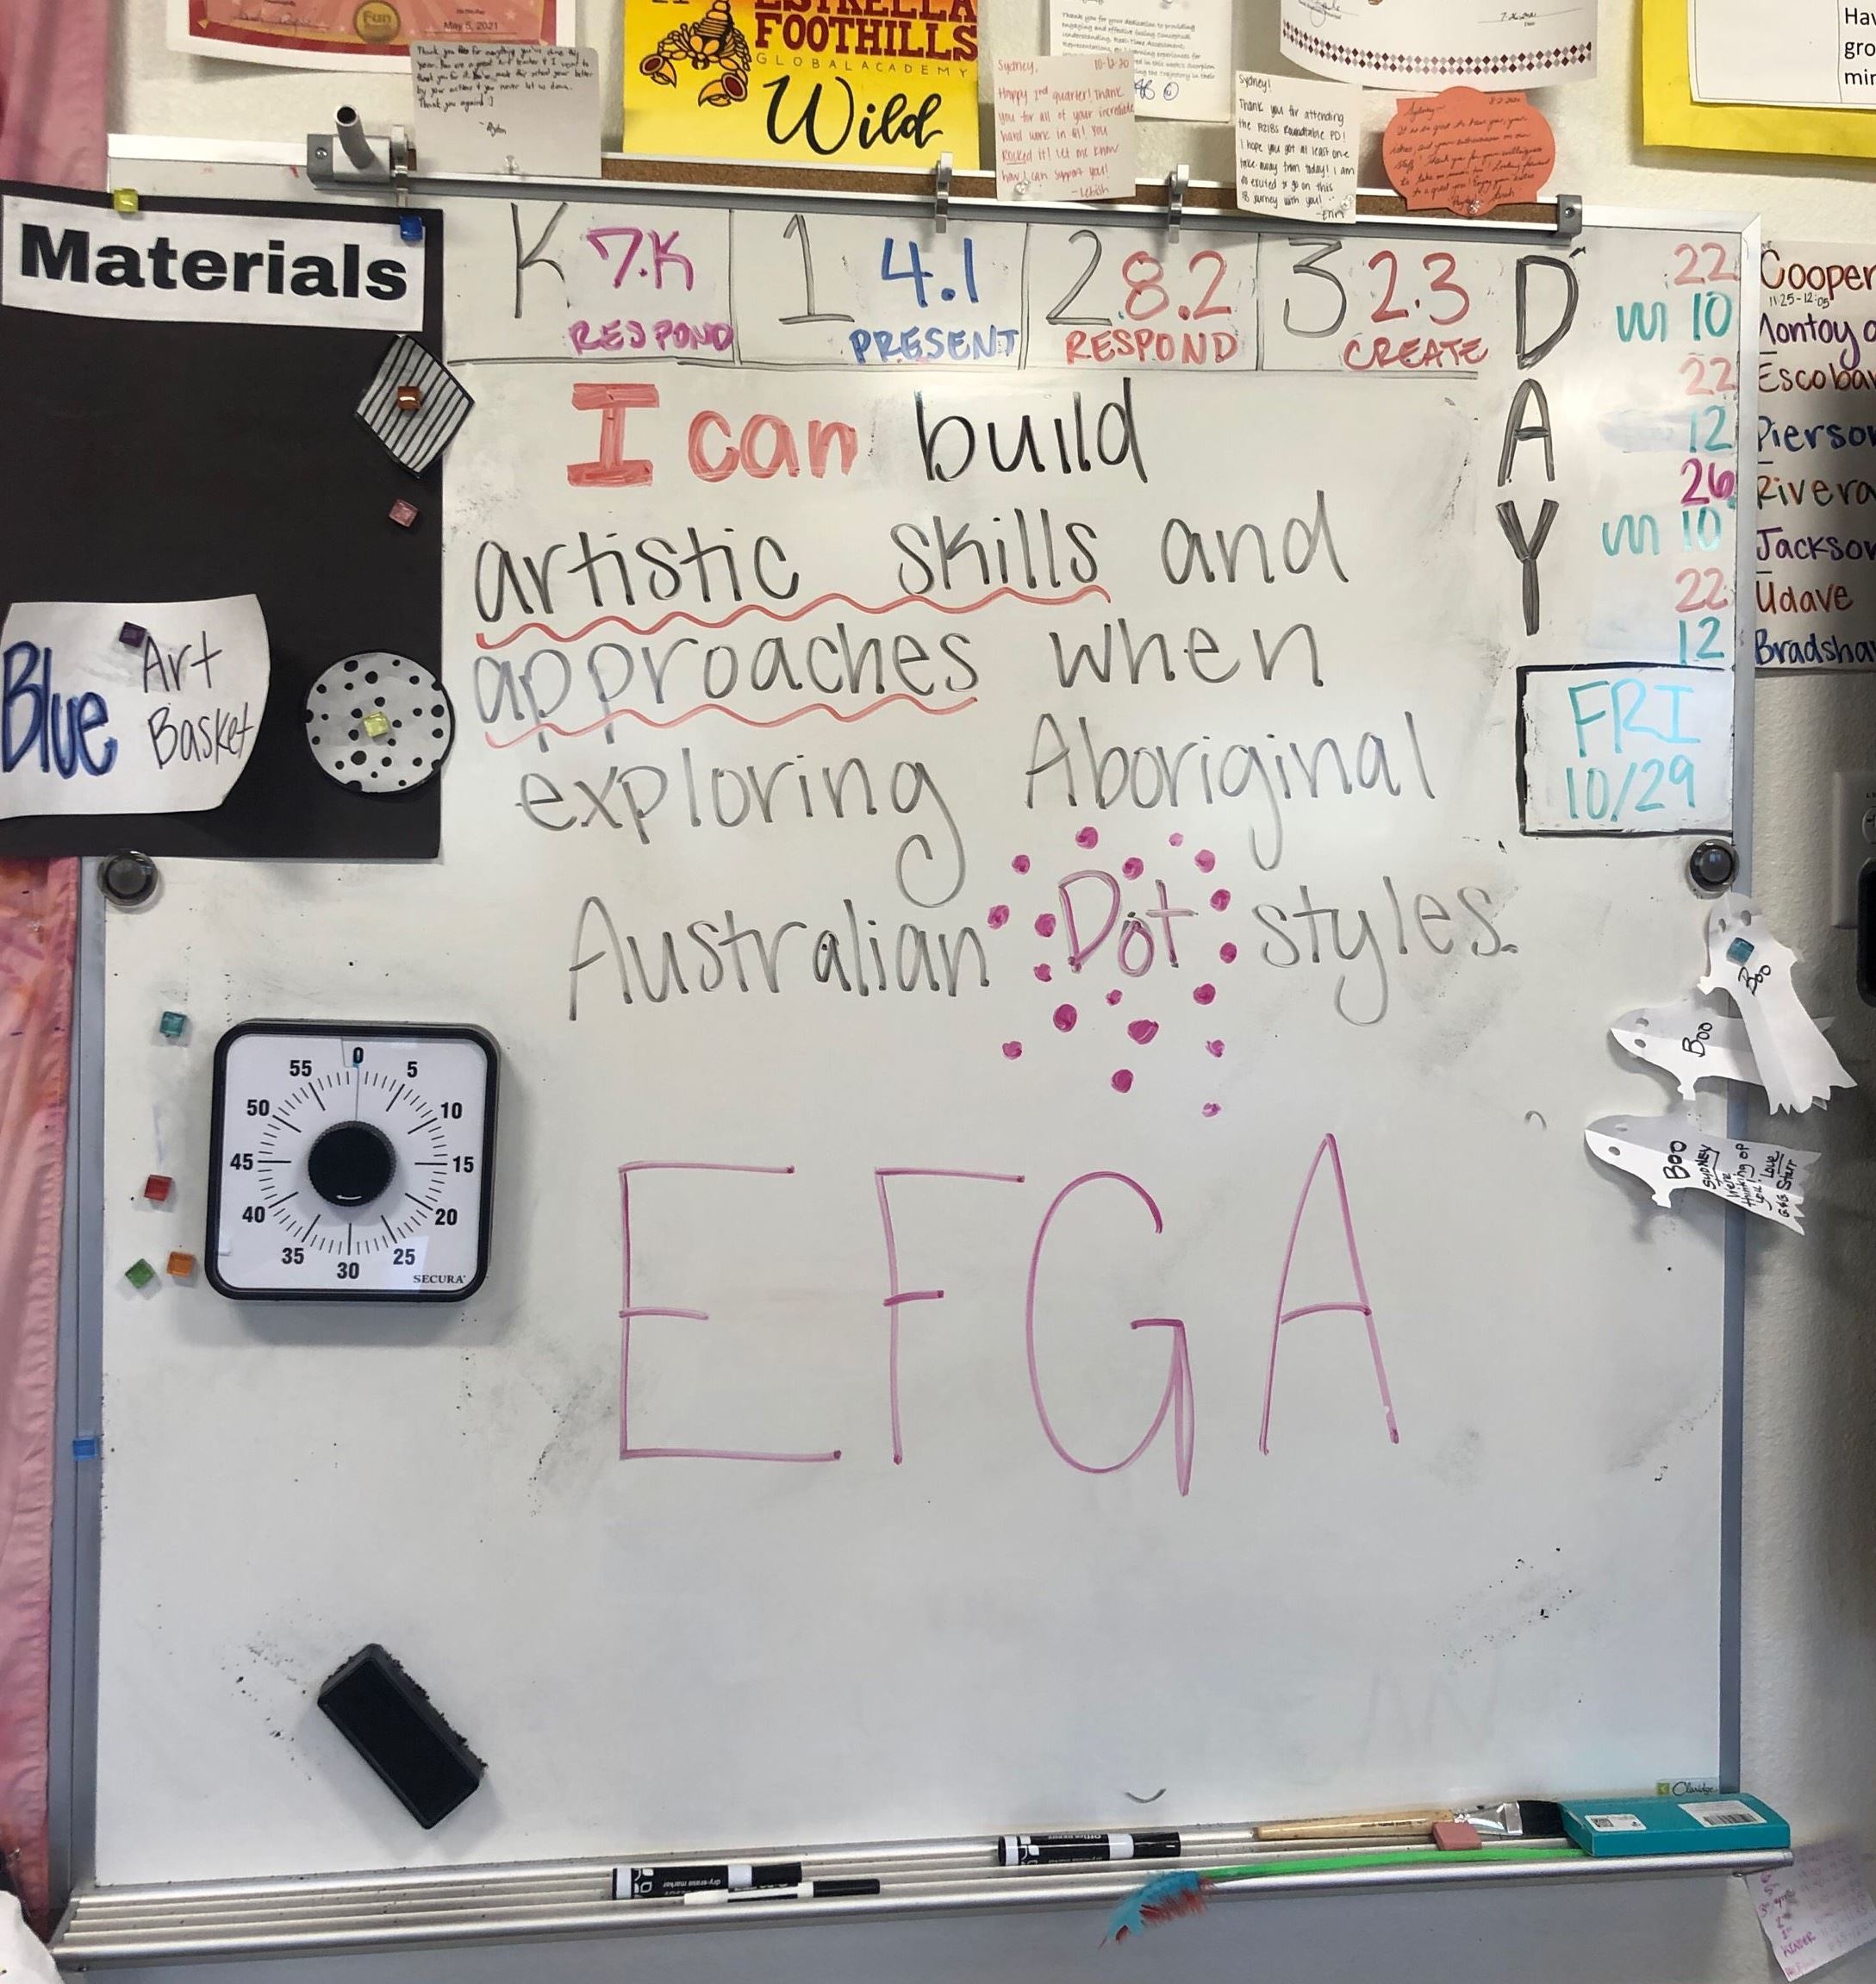 Fun
May 5, 2021
Thank you for everything you've done this
ESTRELLA
FOOTHILLS
GLOBAL ACADEMY
Wild
Thank you for your dedication to providing
Sydney, 10-12-20
Happy 2nd quarter! Thank
you for all of your incredible
hard work in Q1! You
Rocked it! Let me know
how I can support you!
Sydney!
Thank you for attending
I hope you got at least one
take away from today! I am
so excited to go on this
journey with you!
-Erin
Hav
gro
min
Materials
K 7.K
RESPOND
1 4.1
PRESENT
2 8.2
RESPOND
3 2.3
CREATE
DAY
22 Cooper
11:25-12:05
m 10 Montoya
22 Escobar
12 Pierson
26 Rivera
m 10 Jackson
22 Udave
12 Bradshaw
FRI
10/29
I can build
artistic skills and
approaches when
exploring Aboriginal
Australian Dot styles.
Blue Art
Basket
0
5
10
15
20
25
30
35
40
45
50
55
SECURA
Boo
Boo
Boo
SYDNEY
We're
thinking of
you!
Love
G&G Starr
EFGA
Claridge
dry-erase marker